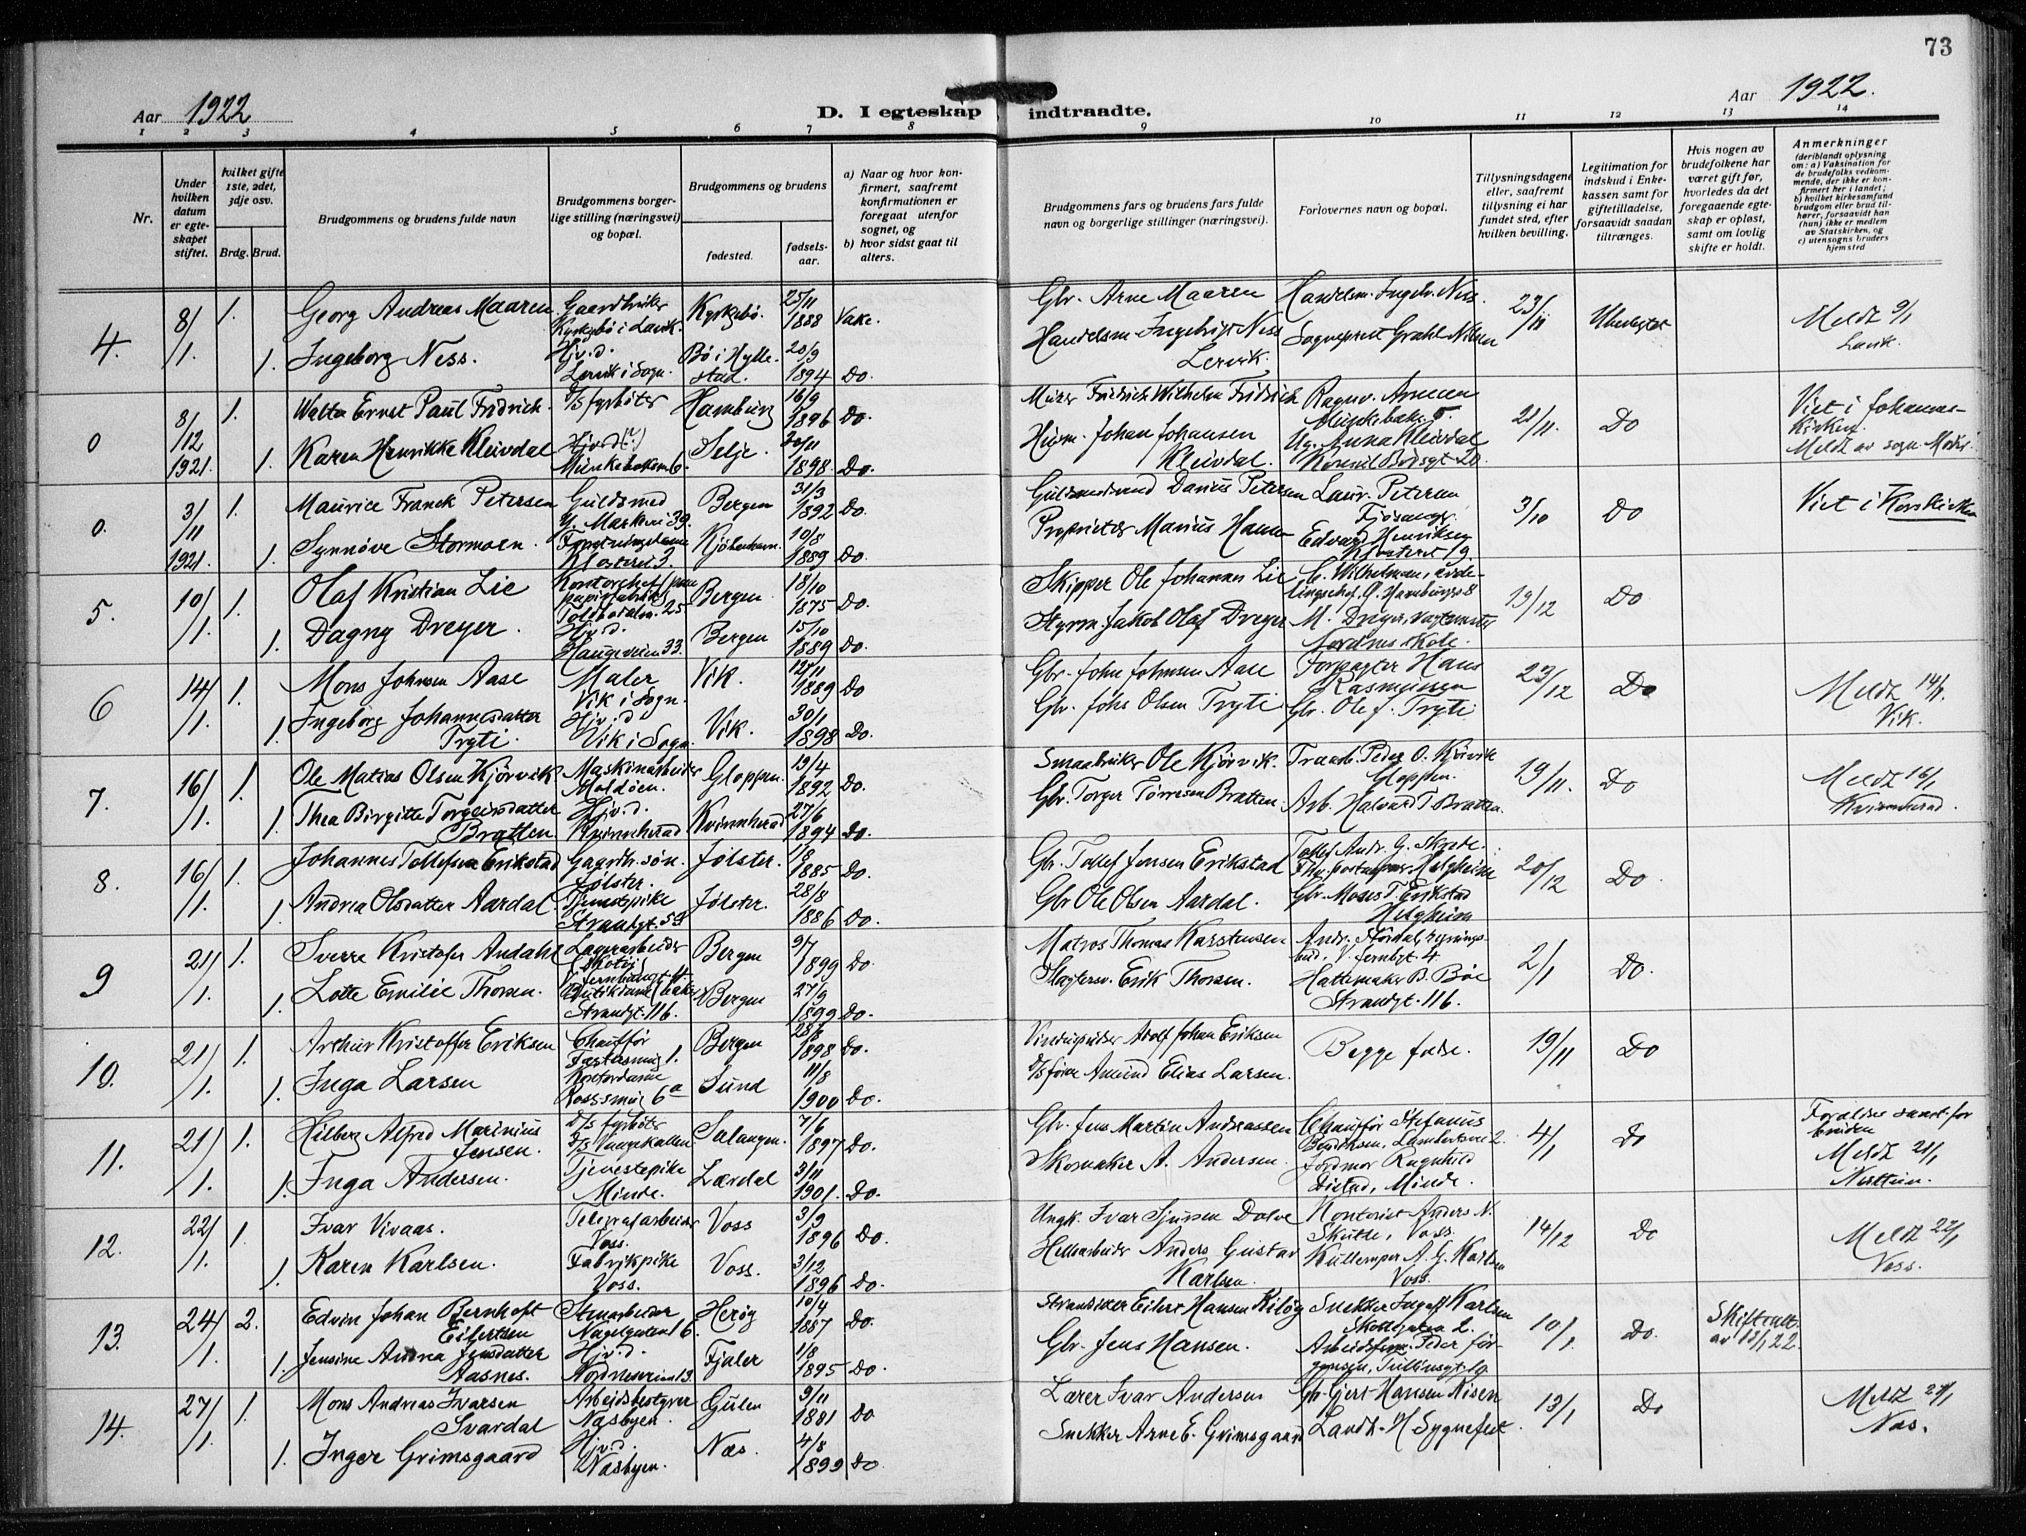 73
Aar 1922
D. I egteskap indtraadte.
Aar 1922.
1 2 3 4 5 6 7 8 9 10 11 12 13 14
Nr.
Under hvilken datum er egteskapet stiftet.
hvilket gifte 1ste, 2det, 3dje osv.
Brdg. Brud.
Brudgommens og brudens fulde navn
Brudgommens borgerlige stilling (næringsvei) og bopæl.
Brudgommens og brudens
fødested.
fødselsaar.
a) Naar og hvor konfirmert, saafremt konfirmationen er foregaat utenfor sognet, og
b) hvor sidst gaat til alters.
Brudgommens fars og brudens fars fulde navn og borgerlige stillinger (næringsvei).
Forlovernes navn og bopæl.
Tillysningsdagene eller, saafremt tillysning ei har fundet sted, efter hvilken bevilling.
Legitimation for indskud i Enkekassen samt for giftetilladelse, forsaavidt saadan tiltrænges.
Hvis nogen av brudefolkene har været gift før, hvorledes da det foregaaende egteskap er opløst, samt om lovlig skifte er holdt.
Anmerkninger
(deriblandt oplysning om: a) Vaksination for de brudefolks vedkommende, der ikke er konfirmert her i landet; b) hvilket kirkesamfund brudgom eller brud tilhører, forsaavidt han (hun) ikke er medlem av Statskirken, og c) utensogns bruders hjemsted
4. 8/1. 1. Georg Andreas Maaren Gaardbruker Kyrkebö i Lavik. Kyrkebö. 25/11 1888 Vake. Gbr. Arne Maaren Handelsm. Ingebr. Ness. 23/11 Ubeslegtet Meldt 9/1 Lavik.
1. Ingeborg Ness. Hjv.d. Lervik i Sogn. Bö i Hyllestad. 20/9 1894 Do. Handelsm. Ingebrigt Ness Lervik. Sogneprest Grahl Nilsen
0 8/12 1921. 1. Walter Ernst Paul Fridrich. D/S fyrböter Hamburg 16/9 1896 Do. Murer Fridrich Wilhelm Fridrich Ragnv. Munkebakg. 5. 21/11. Do Viet i Johanneskirken. Meldt av sogn.
1. Karen Henrikke Kleivdal Hjv.d (?) Munkebakken 6. Selje. 20/11 1898 Do. Johan Johansen Kleivdal. Ug. Anna Kleivdal 20.
0. 3/11 1921. 1. Maurice Franck Petersen Guldsmed N. Markevei 39. Bergen 31/3 1892 Do. Darius Petersen Laur. Petersen Fjösanger. 3/10 Do Viet i Korskirken
1. Synnöve Stormoen. Klosteret 3. Kjöbenhavn. 10/8 1889 Do. Proprietær Marius Hansen Edvard Henriksen Klosteret 19.
5. 10/1. 1. Olaf Kristian Lie Kontorchef Toldbodalm. 25 Bergen 18/10 1875 Do. Skipper Ole Johannes Lie C. Wilhelmsen, avdelingschef, Ö. Hamburgs 8 19/12 Do
1. Dagny Dreyer. Hjv.d. Haugeveien 33. Bergen 15/10 1889 Do. Styrm. Jakob Olaf Dreyer M. Dreyer, vagtmester Nordnes skole.
6 14/1. 1. Mons Johnsen Aase Maler Vik i Sogn. Vik. 12/11 1889 Do Gbr. John Johnsen Aase Forpagter Hans Rasmussen 23/12 Do Meldt 14/1. Vik.
1. Ingeborg Johannesdatter Tryti. Hjv.d Vik i Sogn. Vik. 30/1 1898 Do. Gbr. Johs Olsen Tryti Gbr. Ole J. Tryti
7. 16/1. 1. Ole Matias Olsen Kjörvik Maskinarbeider Maldöen. Gloppen. 19/4 1892 Do. Smaabruker Ole Kjörvik. Peder O. Kjörvik Gloppen. 19/11. Do Meldt 16/1 Kvinnherad.
1. Thea Birgitte Torgeirsdatter Bratten. Hjv.d. Kvinnherad Kvinnherad 27/6 1894 Do. Gbr. Torger Törresen Bratten. Arb. Halvard T. Bratten.
8. 16/1. 1. Johannes Tollefsen Erikstad Gaardbr. sön. Jölster. Jölster. 1/8 1885 Do. Gbr. Tollef Jensen Erikstad Tollef Andr. G. Skrede. Helgheim 20/12 Do.
1. Andrea Olsdatter Aardal. Tjenestepike Strandgt. 53 Jölster. 28/8 1886 Do. Gbr Ole Olsen Aardal. Gbr. Moses T. Erikstad Helgheim
9 21/1. 1. Sverre Kristofer Andahl Lagerarbeider Bergen 9/7 1899 Do. Matros Thomas Karstensen Andr. Stordal, regningsbud, V. fernbgt 4 2/1 Do.
1. Lotte Emilie Thorsen. Butikdame Strandgt. 116. Bergen 27/9 1899 Do. Slagtersv. Erik Thorsen. Hattemaker B. Böe Strandgt. 116.
10. 21/1. 1. Arthur Kristoffer Eriksen Chaufför 1. Bergen 28/6 1898 Do. Adolf Johan Eriksen Begge fedre. 19/11 Do
1. Inga Larsen Kontordame 6a Sund 11/8 1900 Do. Amund Elias Larsen.
11. 21/1. 1. Hilberg Alfred Marinius Jensen. D/S fyrböter Salangen. 7/6 1897 Do. Gbr. Jens Martin Andreassen Chaufför Stefanus 2. 4/1 Do Meldt 21/1
1. Inga Andersen. Tjenestepike Minde. Lærdal 3/11 1901. Do. Skomaker A. Andersen. Jordmor Ragnhild Minde.
12. 22/1. 1. Ivar Vivaas. Telegrafarbeider Voss. Voss 3/9 1896 Do. Ungk. Ivar Sjursen Dolve Kontorist Anders N. Skutle, Voss. 14/12 Do Meldt 22/1 Voss.
1. Karen Karlsen. Fabrikpike Voss. Voss. 3/12 1896 Do. Hellearbeider Anders Gustav Karlsen. A. G. Karlsen Voss.
13. 24/1. 2. Edvin Johan Bernhoft Eilertsen Stenarbeider Nagelgaten 16. Heröy 10/4 1887 Do. Strandsitter Eilert Hansen Snekker Ingolf Karlsen 2. 10/1 Do. Skifteatt. av 12/1 22.
1. Jensine Andrea Jensdatter Aasnes. Hjv.d. Nordnesveien 13. Fjaler 1/8 1895 Do. Gbr. Jens Hansen. Arbeidsform. Peder Jörgensen, Tullinsgt. 19.
14. 27/1. 1. Mons Andreas Ivarsen Svardal Arbeidsbestyrer Nasbyen. Gulen 9/11 1881 Do Lærer Ivar Andersen Gbr. Gjert Hansen Risen 13/1 Do Meldt 27/1 Nas.
1. Inger Grimsgaard Hjv.d. Nasbyen. Næs. 4/8 1899 Do. Snekker Arne E. Grimsgaard Landh. H Sygnefest